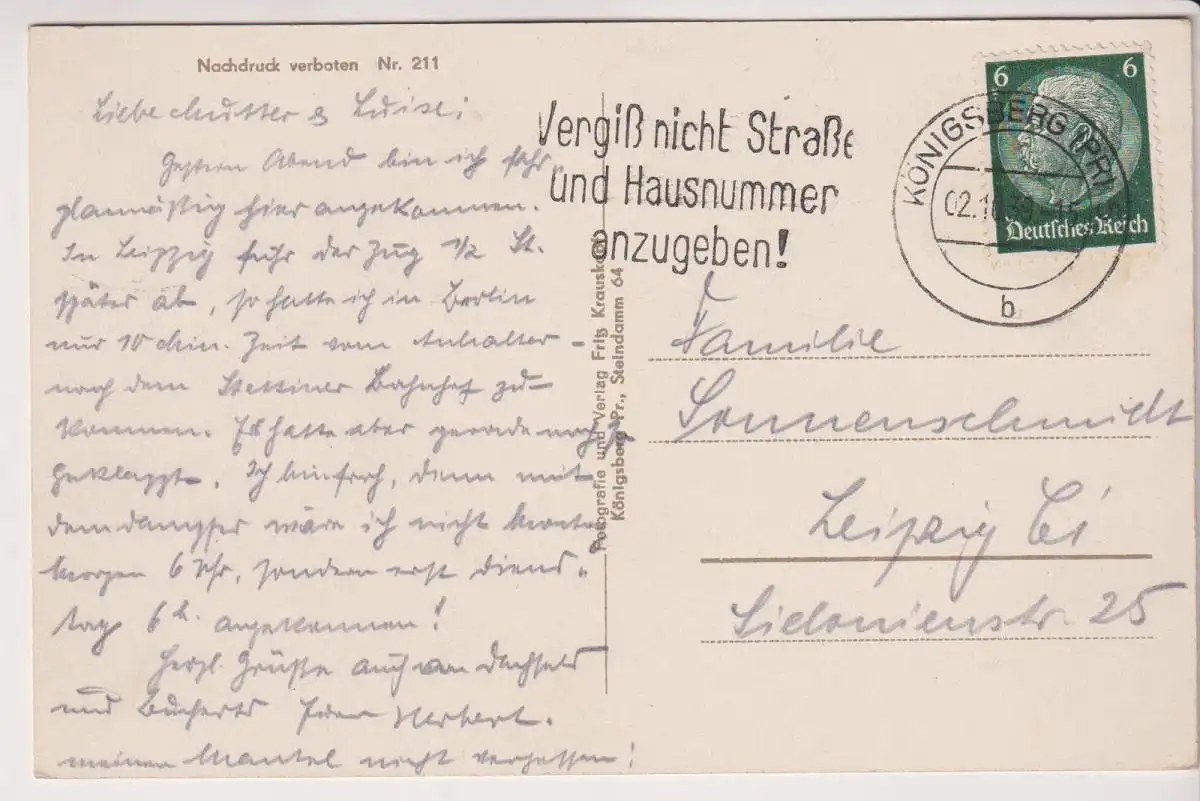 Nachdruck verboten Nr. 211
Liebe Mutter & Luise!
Gestern Abend bin ich fahr-
planmäßig hier angekommen.
In Leipzig fuhr der Zug 1/2 St.
später ab, so hatte ich in Berlin
nur 10 Min. Zeit vom Anhalter-
nach dem Stettiner Bahnhof zu
kommen. Es hatte aber gerade noch
geklappt. Ich bin froh, denn mit
dem Dampfer wäre ich nicht Montag
Morgen 6 Uhr, sondern erst Diens-
tag 6 h. angekommen!
Herzl. Grüße auch von Dachsels
und Bucherts Euer Herbert.
meinen Mantel nicht vergessen!
Fotografie und Verlag Fritz Krauskopf
Königsberg Pr., Steindamm 64
Vergiß nicht Straße
und Hausnummer
anzugeben!
KÖNIGSBERG (PR)
02.10.
b
6 6
Deutsches Reich
Familie
Sonnenschmidt
Leipzig C1
Sidonienstr. 25